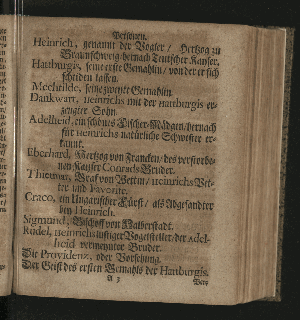 Personen.
Heinrich, genannt der Vogler / Hertzog zu
Braunschweig / hernach Teutscher Kayser.
Hatburgis, seine erste Gemahlin / von der er sich
scheiden lassen.
Mechtilde, seine zweyte Gemahlin.
Danckwart, Heinrichs mit der Hatburgis er-
zeugter Sohn.
Adelheid, ein schönes Fischer-Mädgen / hernach
für Heinrichs natürliche Schwester er-
kannt.
Eberhard, Hertzog von Francken / des verstorbe-
nen Kayser Conrads Bruder.
Graf von Wettin / Heinrichs Vet-
ter und Favorite.
Craco, ein Hungarischer Fürst / als Abgesandter
bey Heinrich.
Sigmund, Bischoff von Halberstadt.
Rüdel, Heinrichs lustiger Vogelsteller / der Adel-
heid vermeynter Bruder.
Die Providenz, oder Vorsehung.
Der Geist des ersten Gemahls der Hatburgis.
A 3